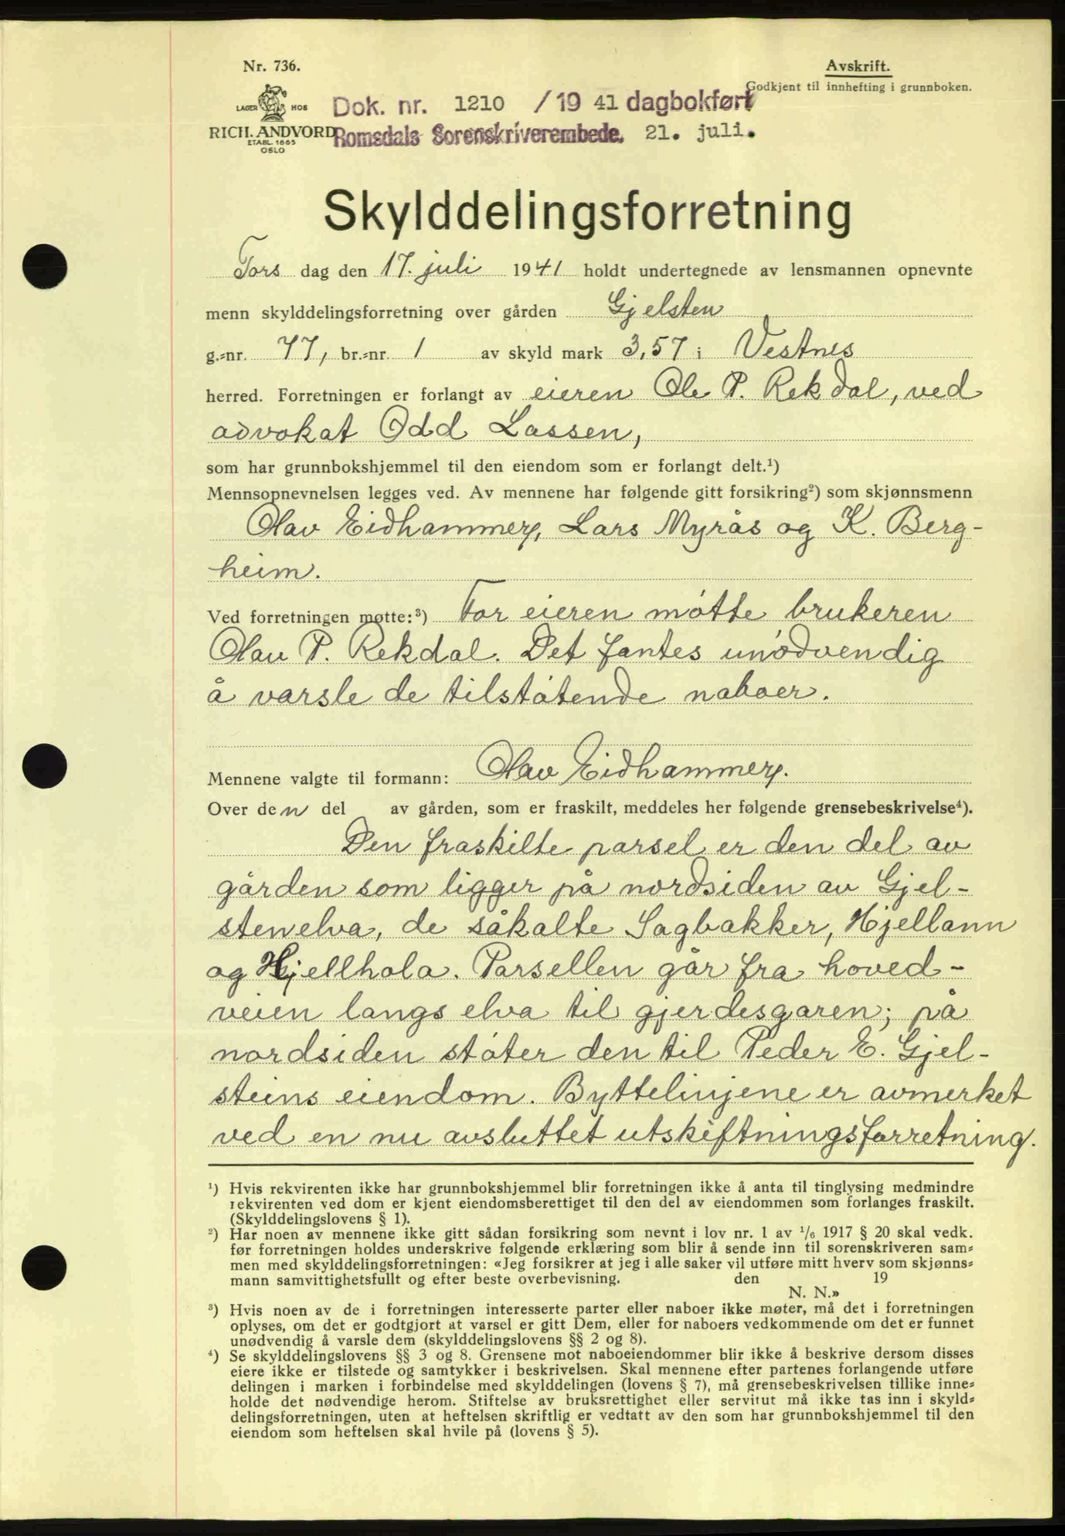 Nr. 736.
Avskrift.
Godkjent til innhefting i grunnboken.
LAGER HOS
RICH. ANDVORD
ETABL. 1865
OSLO
Dok. nr. 1210 /19 41 dagbokført
Romsdals Sorenskriverembede. 21. juli.
Skylddelingsforretning
Tors dag den 17. juli 1941 holdt undertegnede av lensmannen opnevnte
menn skylddelingsforretning over gården Gjelsten
g.=nr. 77, br.=nr. 1 av skyld mark 3,57 i Vestnes
herred. Forretningen er forlangt av eieren Ole P. Rekdal, ved
advokat Odd Lassen,
som har grunnbokshjemmel til den eiendom som er forlangt delt.¹)
Mennsopnevnelsen legges ved. Av mennene har følgende gitt forsikring²) som skjønnsmenn
Olav Eidhammer, Lars Myrås og K. Berg-
heim.
Ved forretningen møtte:³) For eieren møtte brukeren
Olav P. Rekdal. Det fantes unødvendig
å varsle de tilstøtende naboer.
Mennene valgte til formann: Olav Eidhammer.
Over den del av gården, som er fraskilt, meddeles her følgende grensebeskrivelse⁴).
Den fraskilte parsel er den del av
gården som ligger på nordsiden av Gjel-
stenelva, de såkalte Sagbakker, Hjellann
og Hjellhola. Parsellen går fra hoved-
veien langs elva til gjerdesgaren; på
nordsiden støter den til Peder E. Gjel-
steins eiendom. Byttelinjene er avmerket
ved en nu avsluttet utskiftningsforretning.
¹) Hvis rekvirenten ikke har grunnbokshjemmel blir forretningen ikke å anta til tinglysing medmindre
rekvirenten ved dom er kjent eiendomsberettiget til den del av eiendommen som forlanges fraskilt.
(Skylddelingslovens § 1).
²) Har noen av mennene ikke gitt sådan forsikring som nevnt i lov nr. 1 av 1/6 1917 § 20 skal vedk.
før forretningen holdes underskrive følgende erklæring som blir å sende inn til sorenskriveren sam=
men med skylddelingsforretningen: «Jeg forsikrer at jeg i alle saker vil utføre mitt hverv som skjønns=
mann samvittighetsfullt og efter beste overbevisning. den 19
N. N.»
³) Hvis noen av de i forretningen interesserte parter eller naboer ikke møter, må det i forretningen
oplyses, om det er godtgjort at varsel er gitt Dem, eller for naboers vedkommende om det er funnet
unødvendig å varsle dem (skylddelingslovens §§ 2 og 8).
⁴) Se skylddelingslovens §§ 3 og 8. Grensene mot naboeiendommer blir ikke å beskrive dersom disses
eiere ikke er tilstede og samtykker i beskrivelsen. Skal mennene efter partenes forlangende utføre
delingen i marken i forbindelse med skylddelingen (lovens § 7), må grensebeskrivelsen tillike inne=
holde det nødvendige herom. Stiftelse av bruksrettighet eller servitut må ikke tas inn i skyld=
delingsforretningen, uten at heftelsen skriftlig er vedtatt av den som har grunnbokshjemmel til den
eiendom som heftelsen skal hvile på (lovens § 5).